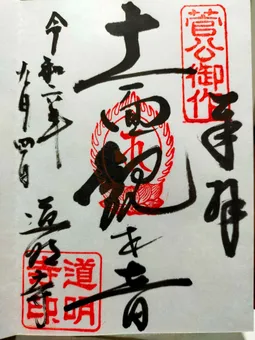 奉拝
菅公御作
十一面観世音
令和六年
九月四日
道明寺
道明寺印